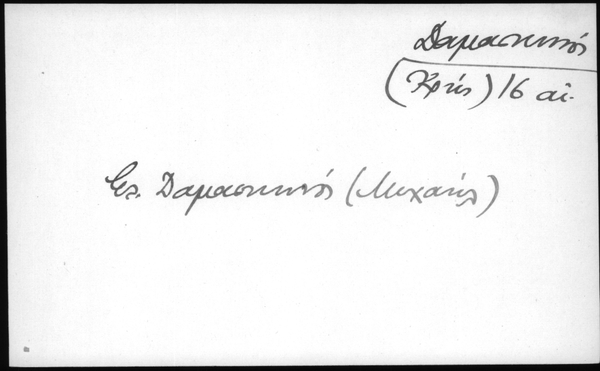 Δαμασκηνός
(Κρής) 16 αἰ.
Δαμασκηνός (Μιχαήλ)